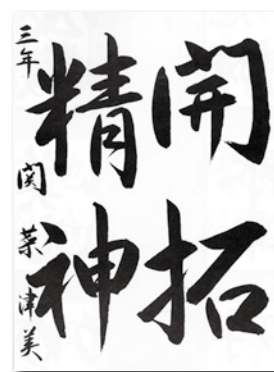 開拓
精神
三年 関 菜津美